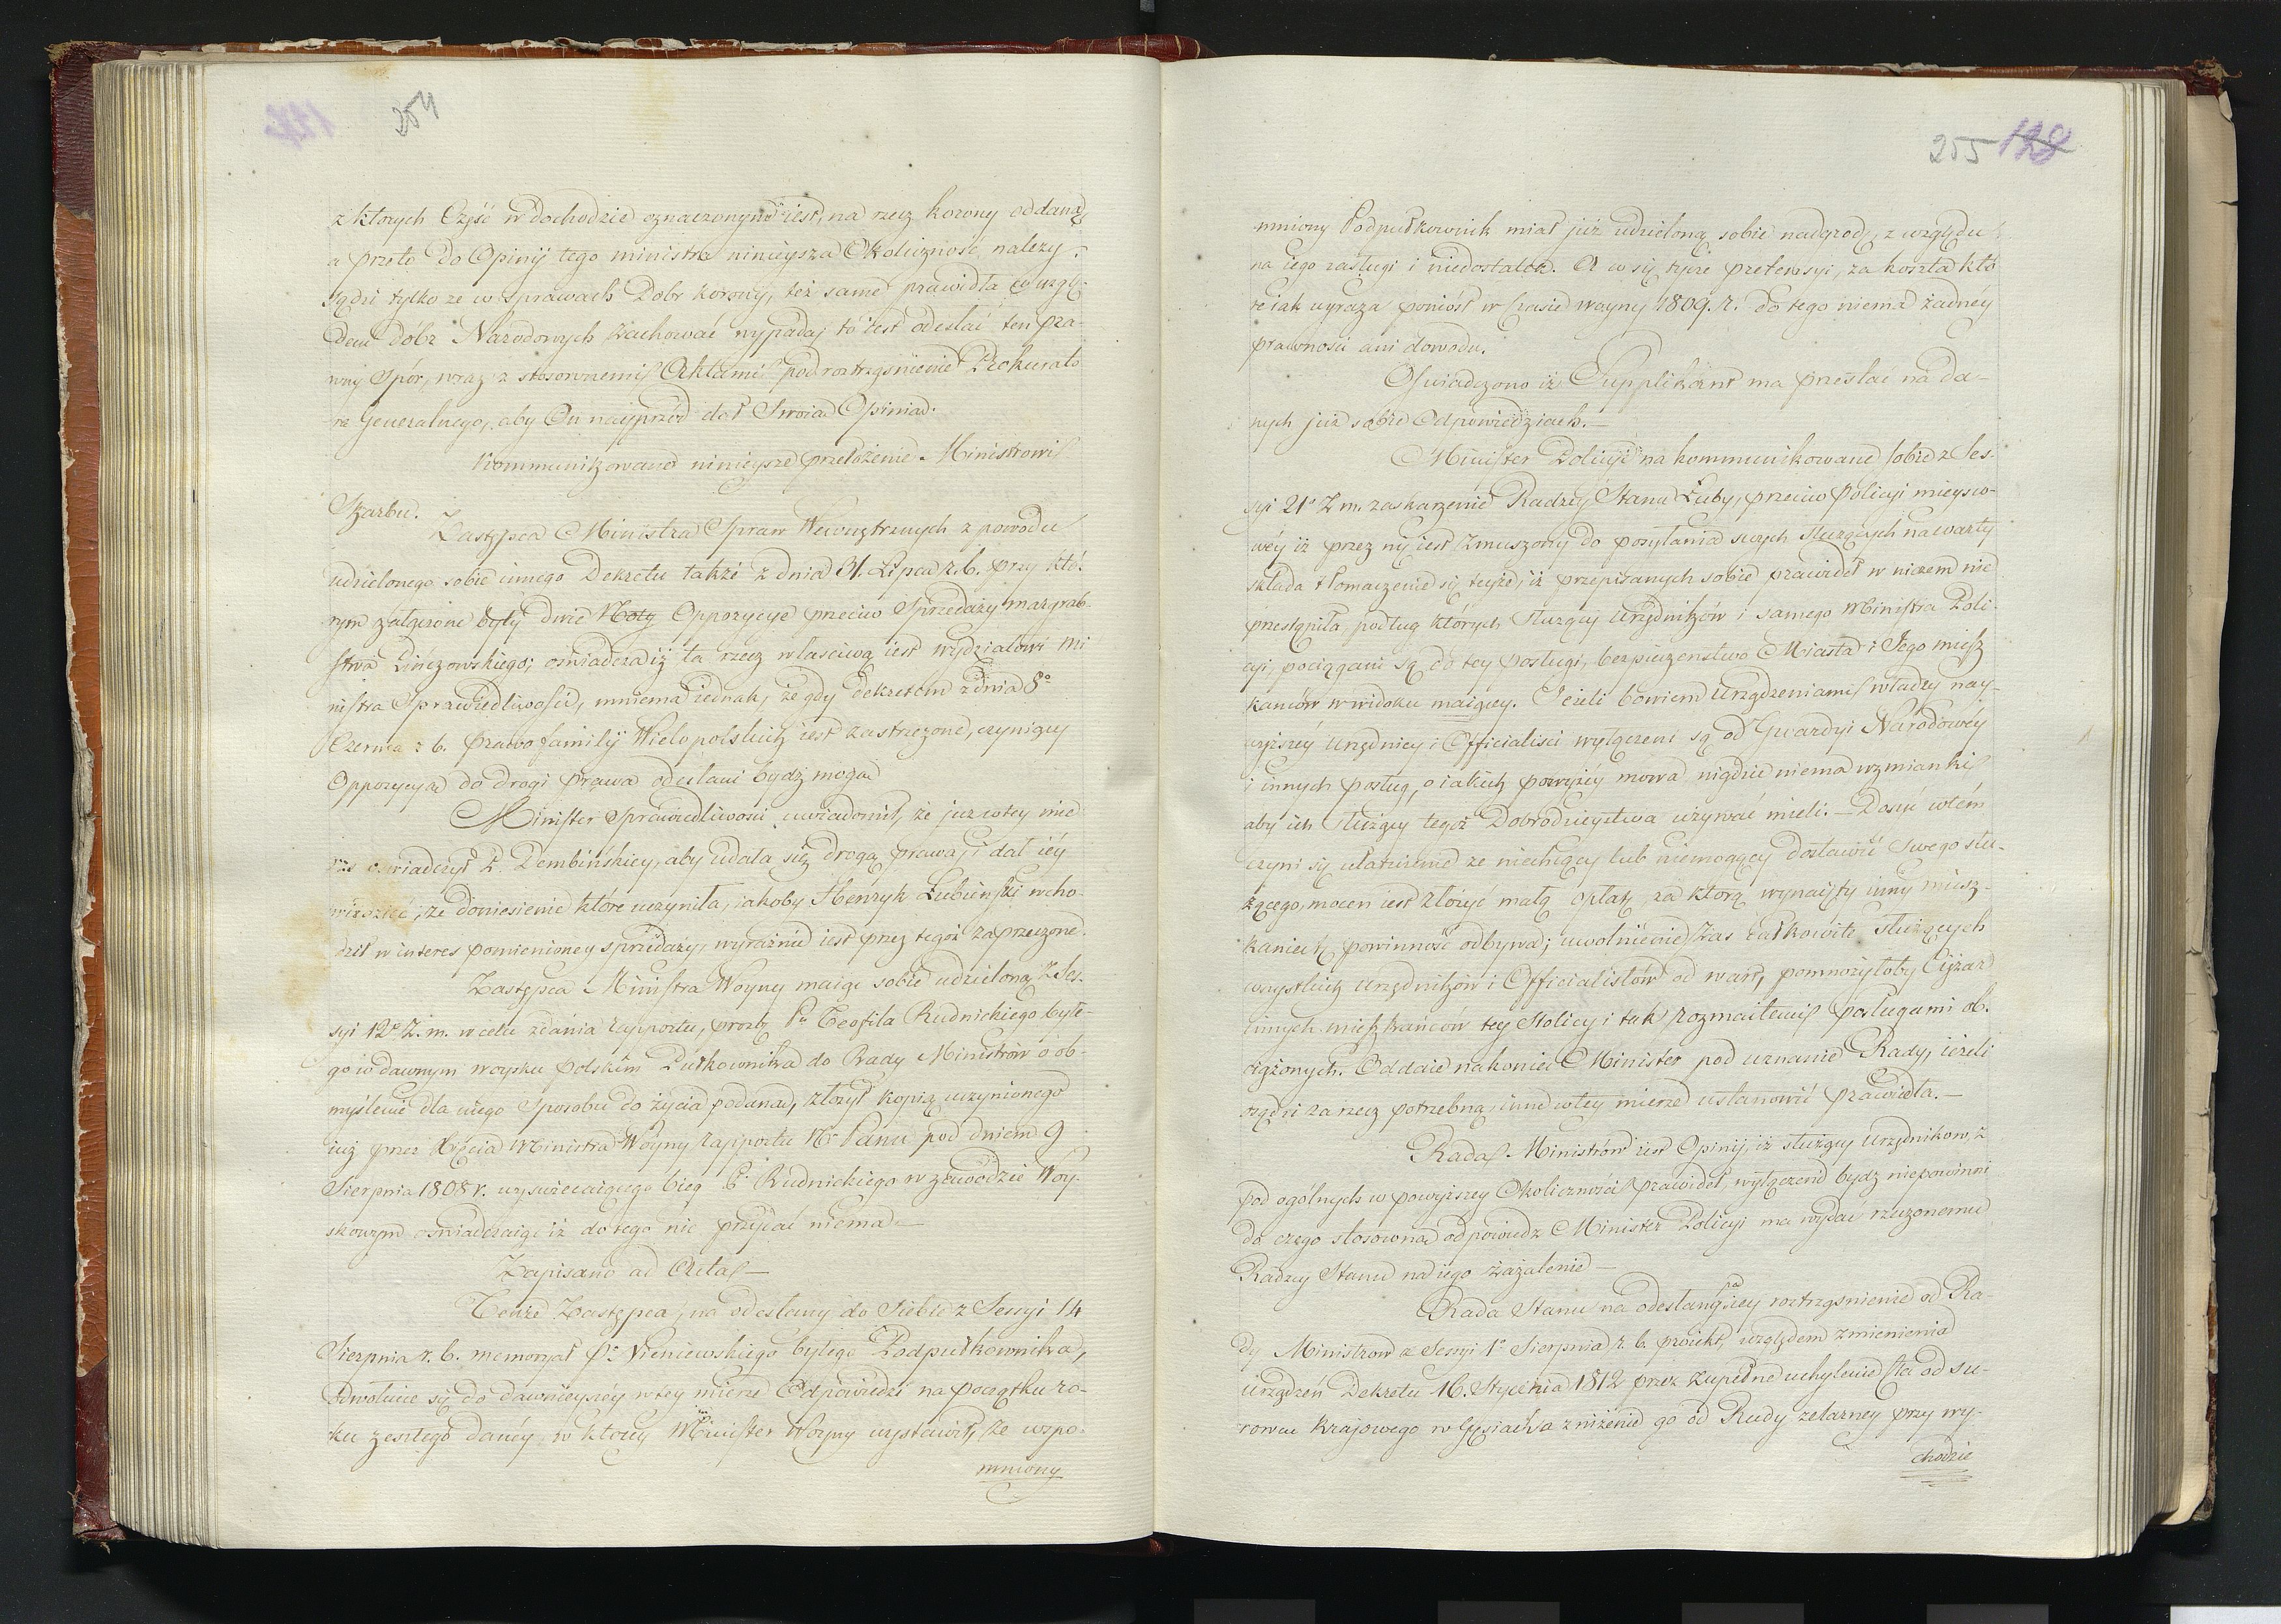 254
z ktorych Część w dochodzie oznaczonym iest, na rzecz korony oddaną
a przeto do Opinij tego ministra ninieysza Okoliczność należy;
sądzi tylko że w sprawach Dobr korony, też same prawidła co wzglę-
dem dóbr Narodowych zachować wypada, to iest odesłać ten pra-
wny Spór, wraz z stosownemi Aktami pod roztrząśnienie Prokurato
ra Generalnego, aby On nayprzód dał Swoia Opinia.
Kommunikowane ninieysze przełożenie Ministrowi
Skarbu.
Zastępca Ministra Spraw Wewnętrznych z powodu
udzielonego sobie innego Dekretu także z dnia 31. Lipca r. b. przy któ-
rym załączone były dwie Noty Oppozycye przeciw Sprzedaży margrab-
stwa Pińczowskiego; oświadcza iż ta rzecz właściwą iest wydziałowi Mi
nistra Sprawiedliwości, mniema iednak, że gdy Dekretem z dnia 8°
Czerwca r b. prawo familij Wielopolskich iest zastrzeżone, czyniący
Oppozycya do drogi prawa odesłani bydź mogą
Minister Sprawiedliwości uwiadomił, że już w tey mie
rze oświadczył P. Dembińskiey, aby udała się drogą prawa, i dał iéy
wiedzieć, że doniesienie które uczyniła, iakoby Henryk Łubieński wcho-
dził w interes pomienioney sprzedaży, wyraźnie iest przez tegoż zaprzeczone.
Zastępca Ministra Woyny maiąc sobie udzieloną z Ses-
syi 12° z. m. w celu zdania rapportu, prozbę Pa Teofila Rudnickiego byłe-
go w dawnym woysku polskim Pułkownika do Rady Ministrów o ob-
myślenie dla niego Sposobu do życia podaną, złożył kopią uczynionego
już przez Xięcia Ministra Woyny rapportu Nr Panu pod dniem 9
Sierpnia 1808 r. wyświecaiącego bieg P. Rudnickiego w zawodzie Woy-
skowym oświadczaiąc iż do tego nic przydać niema.—
Zapisano ad Acta—
Tenże Zastępca, na odesłany do Siebie z Sessyi 14
Sierpnia r. b. memoryał Po Wieniewskiego byłego Podpułkownika,
odwołuie się do dawnieyszéy w tey mierze Odpowiedzi na początku ro-
ku zeszłego danéy, w którey Minister Woyny wystawił, że wspo-
mniony
255 128
mniony Podpułkownik miał już udzieloną sobie nadgrodę, z względu
na iego zasługi i niedostatek. A co się tycze pretensyi, za koszta któ
re iak wyraża poniósł w czasie woyny 1809. r. do tego niema żadnéy
prawności ani dowodu.
Oświadczono iż Supplikant ma przestać na da-
nych już sobie Odpowiedziach.—
Minister Policyi na kommunikowane sobie z Ses-
syi 21° z m. zaskarżenie Radzcy Stanu Łuby, przeciw policyi mieysco-
wéy iż przez nią iest zmuszony do posyłania swych Służących na warty
składa tłomaczenie się teyże, iż przepisanych sobie prawideł w niczem nie
przestąpiła, podług których, Służący Urzędników i samego Ministra Poli-
cyi, pociągani są do tey posługi, bezpieczenstwo Miasta i Jego miesz
kańców w widoku maiącey. Jeżeli bowiem Urządzeniami władzy nay-
wyższey Urzędnicy i Officialiści wyłączeni są od Gwardyi Narodowéy
i innych posług, o iakich powyżéy mowa nigdzie niema wzmianki
aby ich Służący tegoż Dobrodzieystwa używać mieli. — Dosyć w tém
czyni się ułatwienie że niechcący lub niemogący dostawić Swego słu-
żącego, mocen iest złożyć małą opłatę, za którą wynaięty inny miesz-
kaniec tę powinność odbywa; uwolnienie zaś całkowite Służących
wszystkich urzędników i Officialistów od wart, pomnożyłoby Ciężar
innych mieszkańców tey Stolicy i tak rozmaitemi posługami ob-
ciążonych. Oddaie nakoniec Minister pod uznanie Rady, ieżeli
osądzi za rzecz potrzebną, inne w tey mierze ustanowić prawidła.—
Rada Ministrów iest Opinij, iż służący Urzędnikow, z
pod ogólnych w powyższey Okoliczności prawideł, wyłączeni bydź niepowinni
do czego stosowną odpowiedz Minister Policyi ma wydać rzeczonemu
Radzcy Stanu na iego zażalenie—
Rada Stanu na odesłany pod iey roztrząśnienie od Ra-
dy Ministrow z Sessyi 1° Sierpnia r. b. proiekt, względem zmienienia
Urządzeń Dekretu 16. Stycznia 1812 przez zupełne uchylenie cła od su-
rowcu krajowego w gęsiach a zniżenie go od Rudy żelazney przy wy-
chodzie